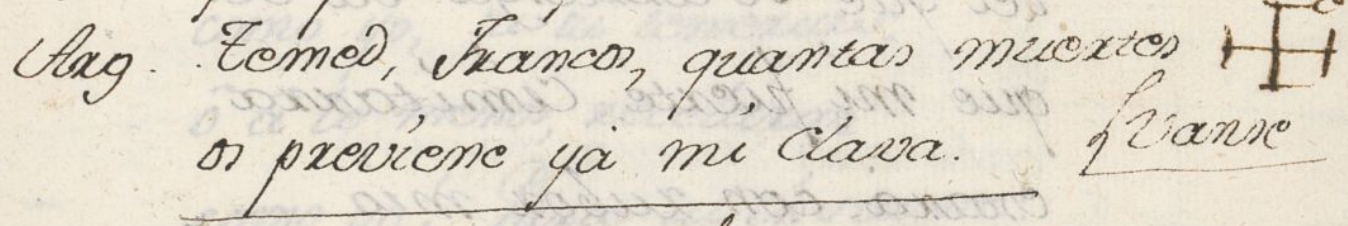 Arg. Temed, Francos, quantas muertes
os previene yá mi Clava. Vanse